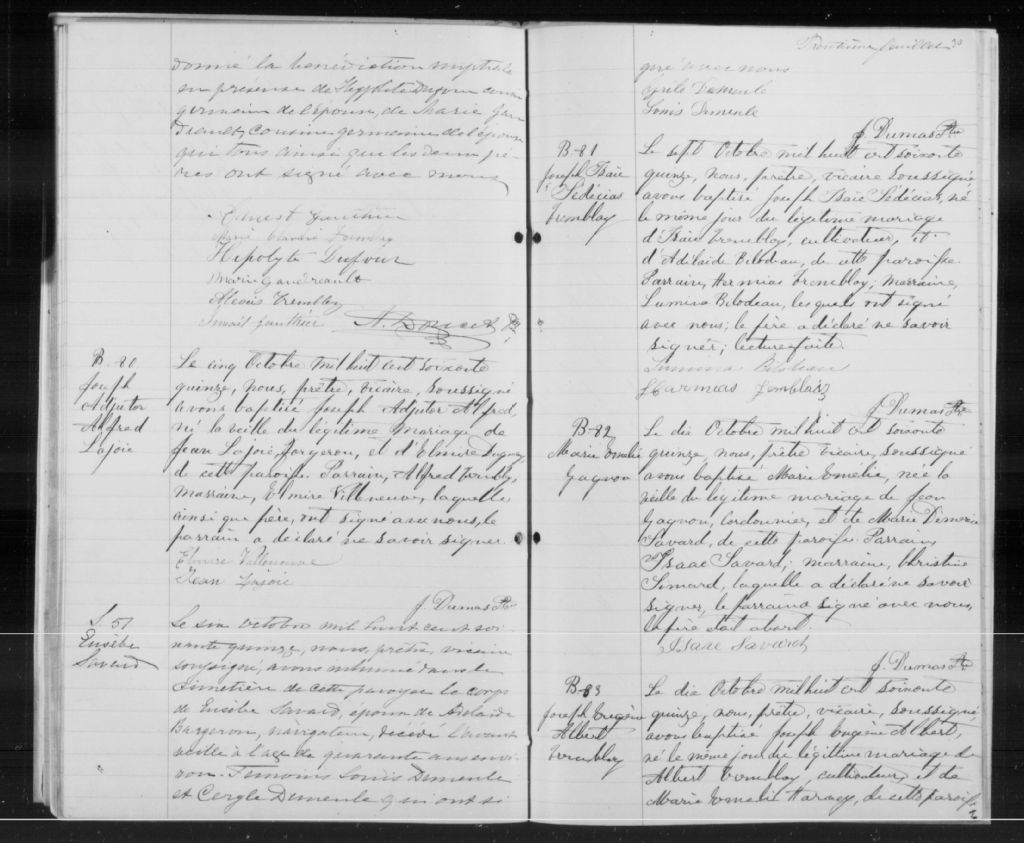 donné la bénédiction nuptiale
en présence de Hypolite Dufour cousin
germain de l'épouse, de Marie Gau
dreault, cousine germaine de l'époux
qui tous ainsi que les deux pè-
res ont signé avec nous
Ernest Gauthier
Marie Tremblay
Hipolyte Dufour
Marie Gaudreault
Alexis Tremblay
Gauthier A. Doucet Ptr
B-80
Joseph
Adjutor
Alfred
Lajoie
Le cinq Octobre mil huit cent soixante
quinze, nous, prêtre, vicaire, soussigné
avons baptisé Joseph Adjutor Alfred,
né la veille du légitime mariage de
Jean Lajoie, forgeron, et d'Elmire Duguay,
de cette paroisse. Parrain, Alfred Tremblay,
Marraine, Elmire Villeneuve, laquelle
ainsi que père, ont signé avec nous, le
parrain a déclaré ne savoir signer.
Elmire Villeneuve
Jean Lajoie
J. Dumas Ptr
S. 51
Eusèbe
Savard
Le six octobre mil huit cent soi-
xante quinze, nous, prêtre, vicaire
soussigné, avons inhumé dans le
cimetière de cette paroisse le corps
de Eusèbe Savard, époux de Adelaide
Bergeron, navigateur, décédé l'avant
veille à l'age de quarante ans envi
ron. Temoins Louis Dements
et Cergle Dements qui ont si
Trentième feuillet 30
gné avec nous
Cyrile Dements
Louis Dements
J. Dumas Ptr
B-81
Joseph Isaïe
Sédécias
Tremblay
Le sept Octobre mil huit cent soixante
quinze, nous, prêtre, vicaire soussigné
avons baptisé Joseph Isaïe Sédécias, né
le même jour du légitime mariage
d'Isaïe Tremblay, cultivateur, et
d'Adélaide Bilodeau, de cette paroisse.
Parrain, Hermias Tremblay; marraine,
Lumina Bilodeau, lesquels ont signé
avec nous; le père a déclaré ne savoir
signer; lecture faite.
Lumina Bilodeau
Harmias Tremblay
J. Dumas Ptr
B-82
Marie Emélie
Gagnon
Le dix Octobre mil huit cent soixante
quinze, nous, prêtre vicaire, soussigné
avons baptisé Marie Emélie, née la
veille du légitime mariage de Jean
Gagnon, Cordonnier, et de Marie Dimerise
Savard, de cette paroisse. Parrain,
Isaac Savard; marraine, Christine
Simard, laquelle a déclaré ne savoir
signer, le parrain a signé avec nous,
le père était absent.
Isaac Savard
J. Dumas Ptr
B-83
Joseph Eugène
Albert
Tremblay
Le dix Octobre mil huit cent soixante
quinze, nous, prêtre, vicaire, soussigné,
avons baptisé Joseph Eugène Albert,
né le même jour du légitime mariage de
Albert Tremblay, cultivateur, et de
Marie Emélie Harvey, de cette paroisse